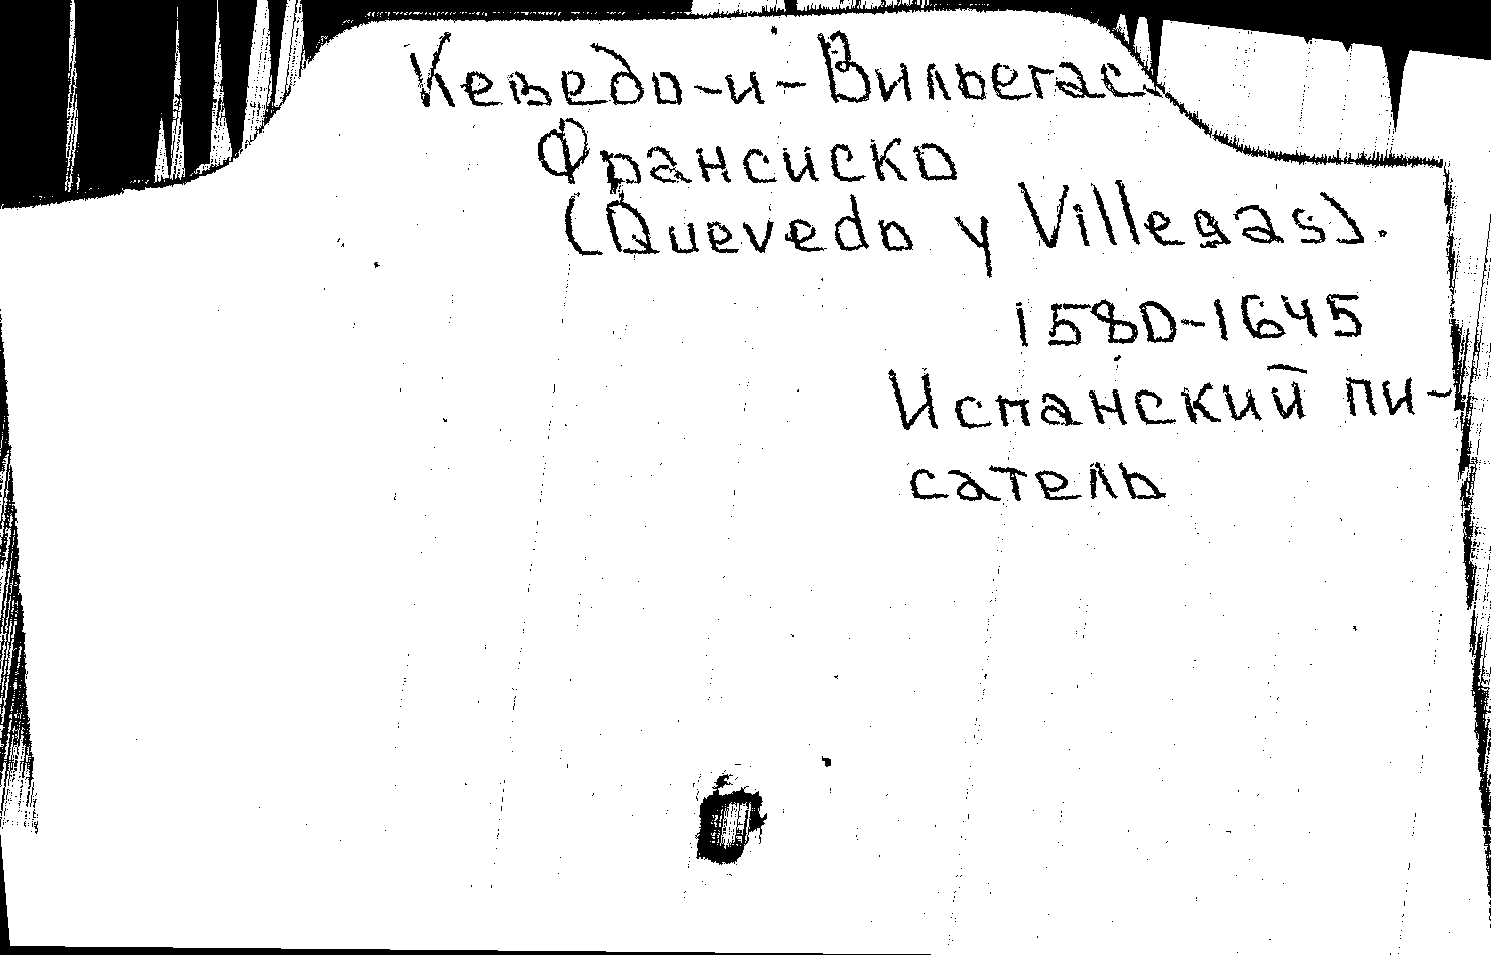 Кеведо-и-Вильегас
Франсиско
(Quevedo y Villegas).
1580-1645
Испанский пи-
сатель